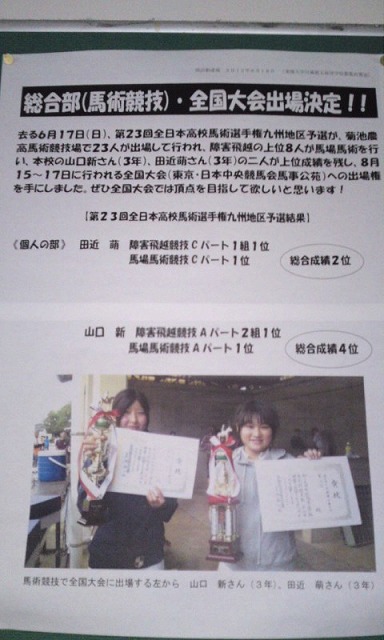 総合部(馬術競技)・全国大会出場決定！！
去る6月17日(日)、第23回全日本高校馬術選手権九州地区予選が、菊池農
高馬術競技場で23人が出場して行われ、障害飛越の上位8人が馬場馬術を行
い、本校の山口新さん(3年)、田近萌さん(3年)の二人が上位成績を残し、8月
15～17日に行われる全国大会(東京・日本中央競馬会馬事公苑)への出場権
を手にしました。ぜひ全国大会では頂点を目指して欲しいと思います！
【第23回全日本高校馬術選手権九州地区予選結果】
《個人の部》 田近 萌 障害飛越競技Cパート1組1位
馬場馬術競技Cパート1位
総合成績2位
山口 新 障害飛越競技Aパート2組1位
馬場馬術競技Aパート1位
総合成績4位
賞状
賞状
馬術競技で全国大会に出場する左から 山口 新さん（3年）、田近 萌さん（3年）